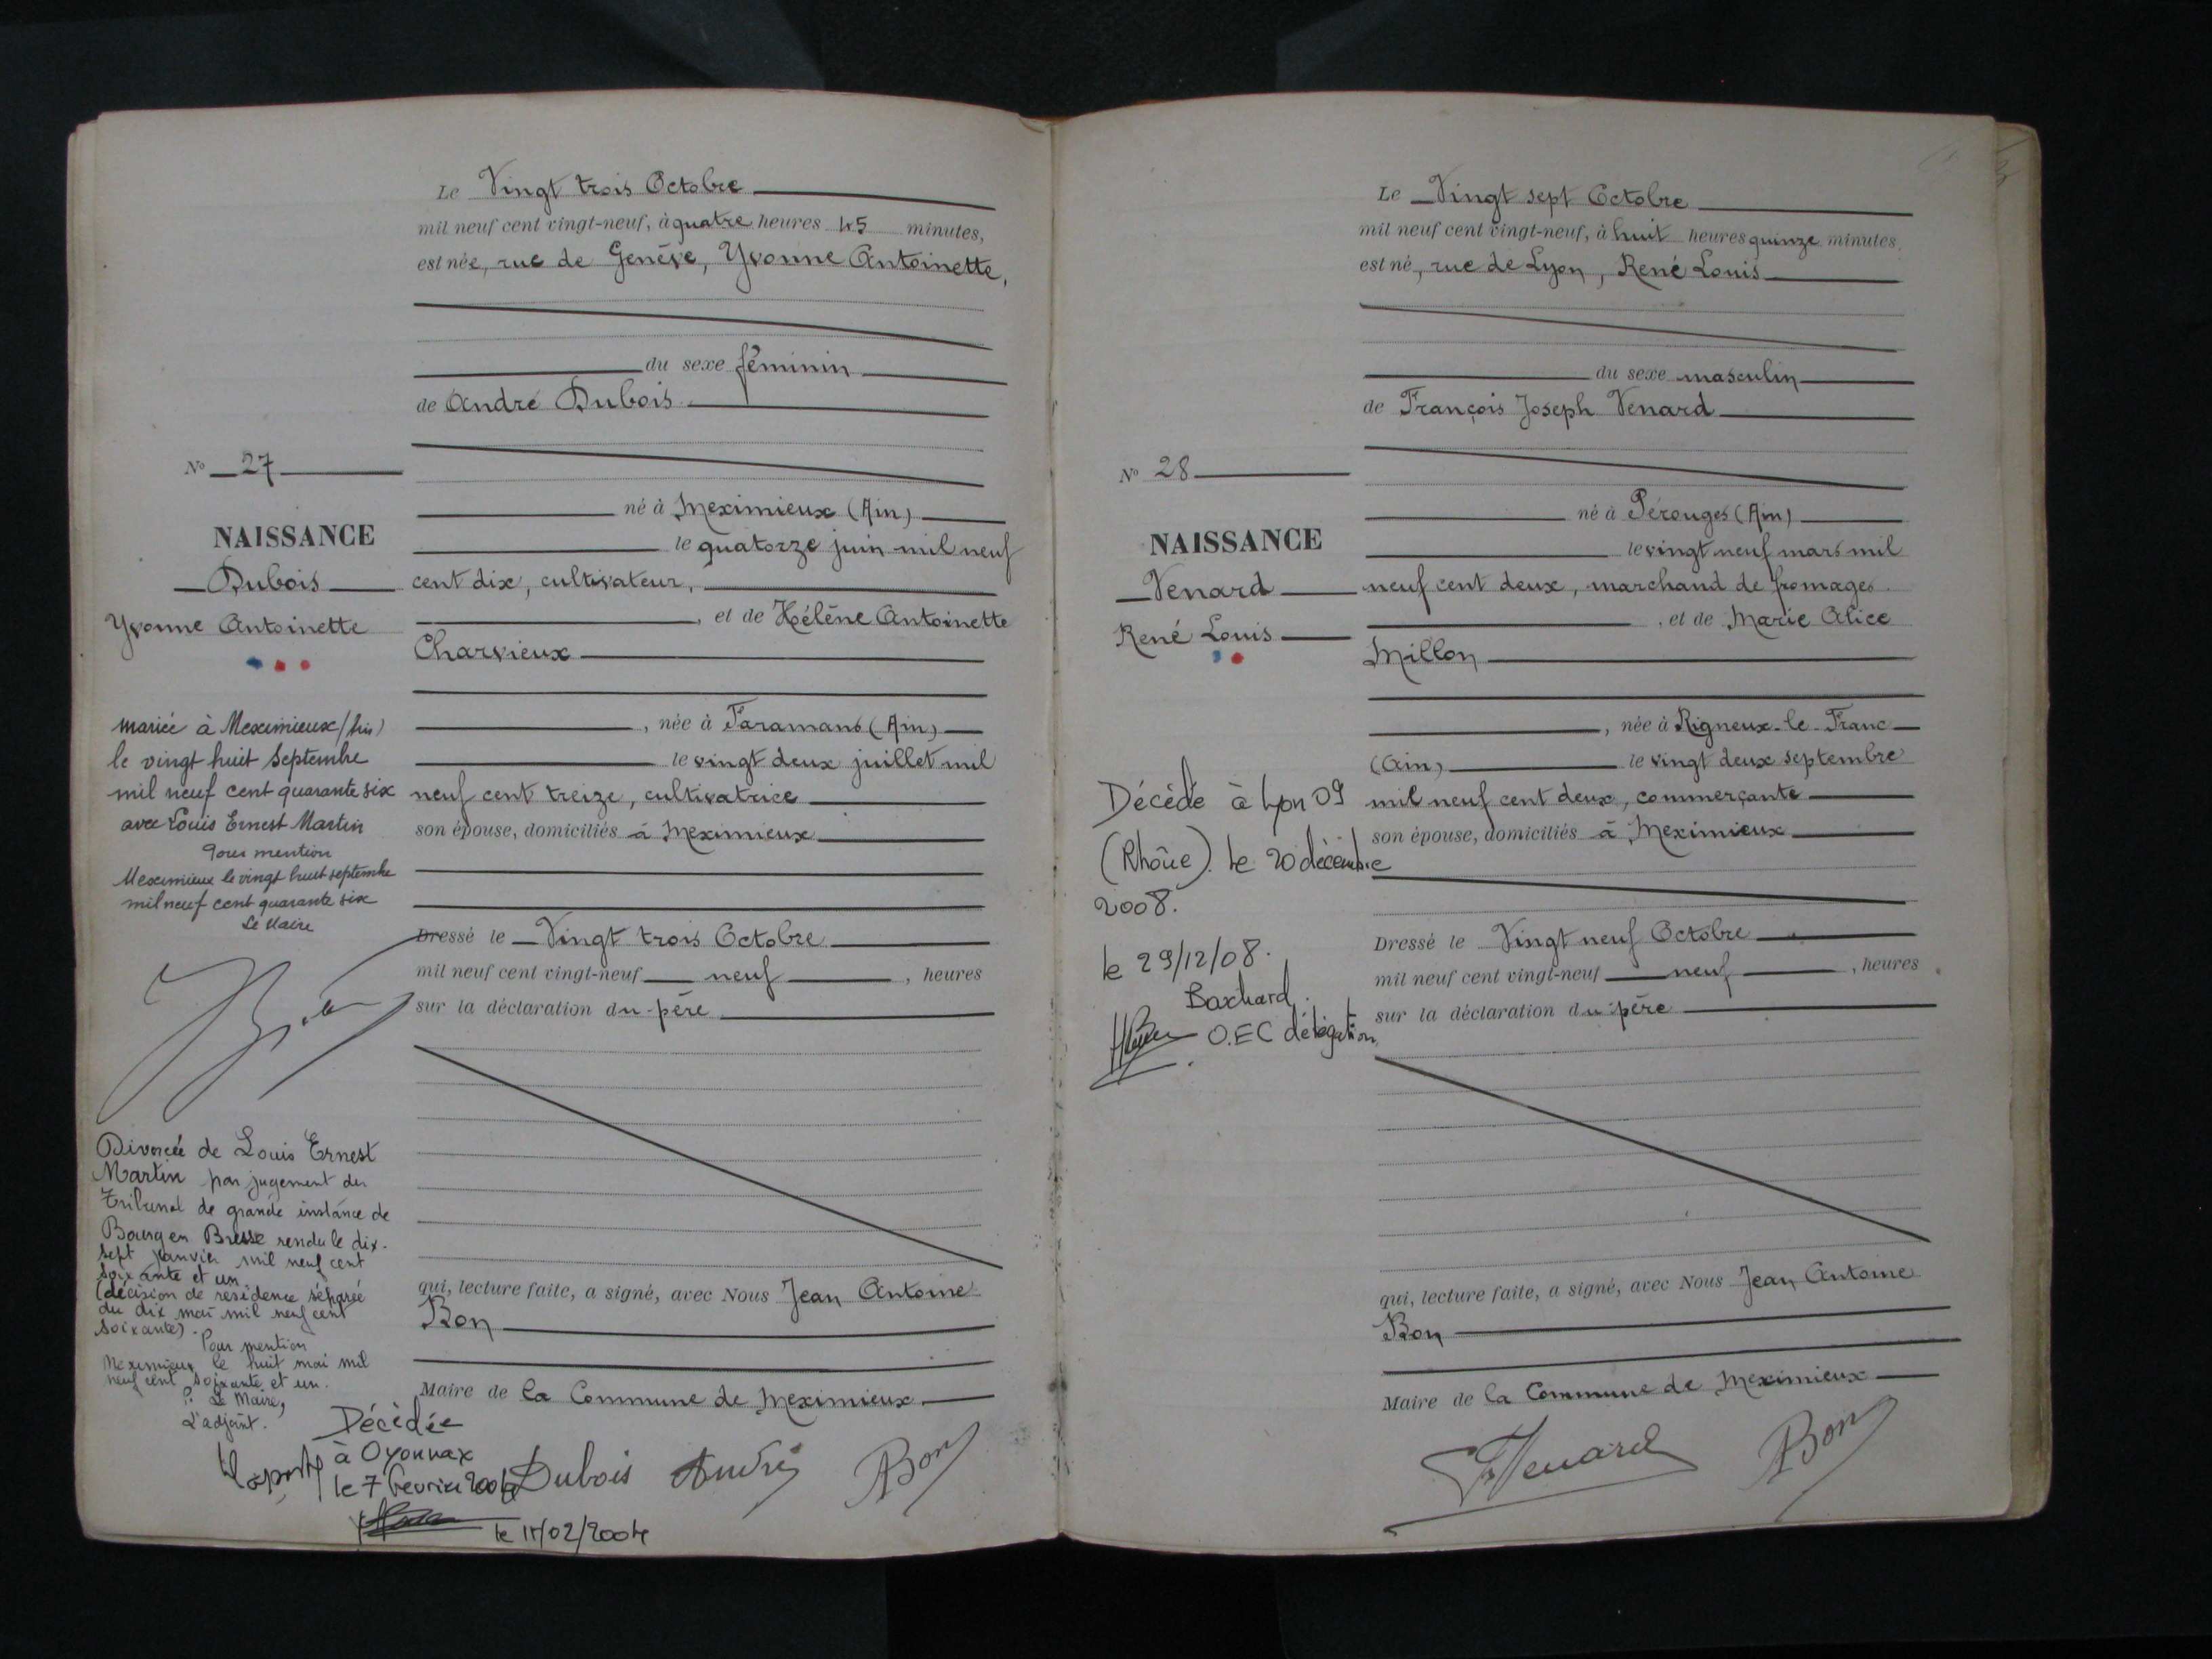 Le Vingt trois Octobre
mil neuf cent vingt-neuf, à quatre heures 45 minutes,
est née, rue de Genève, Yvonne Antoinette,
du sexe féminin
de André Dubois
No 27
né à Meximieux (Ain)
NAISSANCE
le quatorze juin mil neuf
Dubois
cent dix, cultivateur,
Yvonne Antoinette
, et de Hélène Antoinette
Charvieux
, née à Faramans (Ain)
le vingt deux juillet mil
neuf cent treize, cultivatrice
son épouse, domiciliés à Meximieux
mariée à Meximieux (Ain)
le vingt huit Septembre
mil neuf cent quarante six
avec Louis Ernest Martin
Pour mention
Meximieux le vingt huit septembre
mil neuf cent quarante six
Le Maire
Dressé le Vingt trois Octobre
mil neuf cent vingt-neuf neuf, heures
sur la déclaration du père
Divorcée de Louis Ernest
Martin par jugement du
Tribunal de grande instance de
Bourg en Bresse rendu le dix-
sept janvier mil neuf cent
soixante et un.
(décision de résidence séparée
du dix mai mil neuf cent
soixante).
Pour mention
Meximieux le huit mai mil
neuf cent soixante et un.
P. Le Maire,
L'adjoint.
qui, lecture faite, a signé, avec Nous Jean Antoine
Bon
Maire de la Commune de Meximieux
Décédée
à Oyonnax
le 7 février 2004
Dubois André Bon
le 11/02/2004
Le Vingt sept Octobre
mil neuf cent vingt-neuf, à huit heures quinze minutes,
est né, rue de Lyon, René Louis
du sexe masculin
de François Joseph Venard
No 28
né à Pérouges (Ain)
NAISSANCE
le vingt neuf mars mil
Venard
neuf cent deux, marchand de fromages
René Louis
, et de Marie Alice
Millon
, née à Rigneux-le-Franc
(Ain) le vingt deux septembre
mil neuf cent deux, commerçante
son épouse, domiciliés à Meximieux
Décédé à Lyon 09
(Rhône). le 20 décembre
2008.
le 29/12/08.
O.EC délégation
Dressé le Vingt neuf Octobre
mil neuf cent vingt-neuf neuf, heures
sur la déclaration du père
qui, lecture faite, a signé, avec Nous Jean Antoine
Bon
Maire de la Commune de Meximieux
Venard Bon